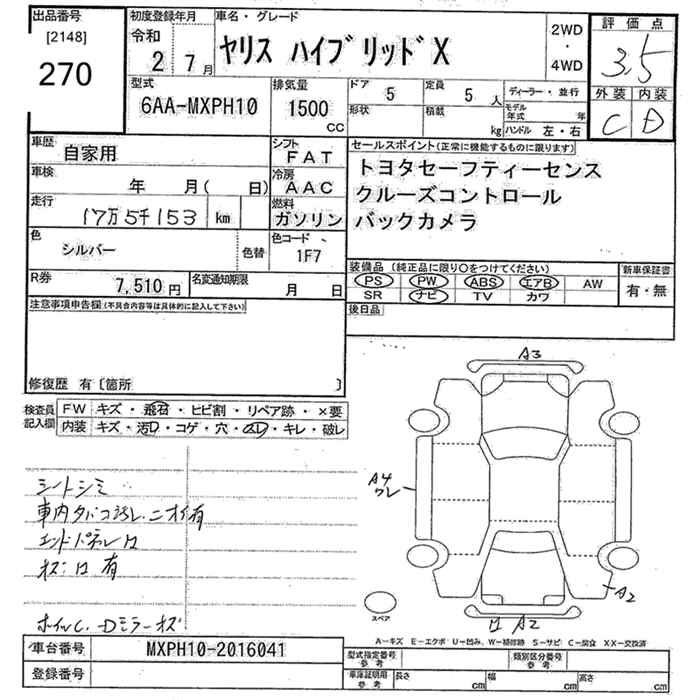 出品番号
[2148]
270
初度登録年月
令和
2 7月
車名・グレード
ヤリス ハイブリッドX
2WD
・
4WD
評価点
3.5
外装 内装
C D
型式
6AA-MXPH10
排気量
1500
CC
ドア 5
定員 5 人
形状
積載 kg
ディーラー・並行
モデル年式 年
ハンドル 左・右
車歴 自家用
シフト FAT
車検 年 月( 日)
冷房 AAC
走行 17万5千153 km
燃料 ガソリン
セールスポイント(正常に機能するものに限ります)
トヨタセーフティーセンス
クルーズコントロール
バックカメラ
色 シルバー
色替
色コード 1F7
R券 7,510 円
名変通知期限 月 日
装備品(純正品に限り○をつけてください)
PS PW ABS エアB AW
SR ナビ TV カワ
新車保証書
有・無
後日品
注意事項申告欄(不具合内容等は具体的に記入して下さい)
修復歴 有〔箇所 〕
検査員記入欄
FW キズ・飛石・ヒビ割・リペア跡・×要
内装 キズ・汚レ・コゲ・穴・スレ・キレ・破レ
シートシミ
車内タバコ汚レ、ニオイ有
エンドパネル
有
A3
A4
A2
A2
スペア
A-キズ E-エクボ U-凹み W-補修跡 S-サビ C-腐食 XX-交換済
車台番号 MXPH10-2016041
登録番号
型式指定番号 参考
類別区分番号 参考
車庫証明用 参考
長さ cm 幅 cm 高さ cm